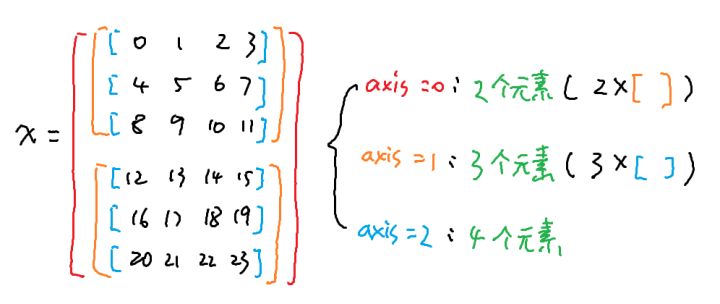 [ 0 1 2 3 ]
[ 4 5 6 7 ]
[ 8 9 10 11 ]
x =
[ 12 13 14 15 ]
[ 16 17 18 19 ]
[ 20 21 22 23 ]
axis =0 : 2个元素 ( 2×[ ] )
axis =1 : 3个元素 ( 3×[ ] )
axis =2 : 4个元素